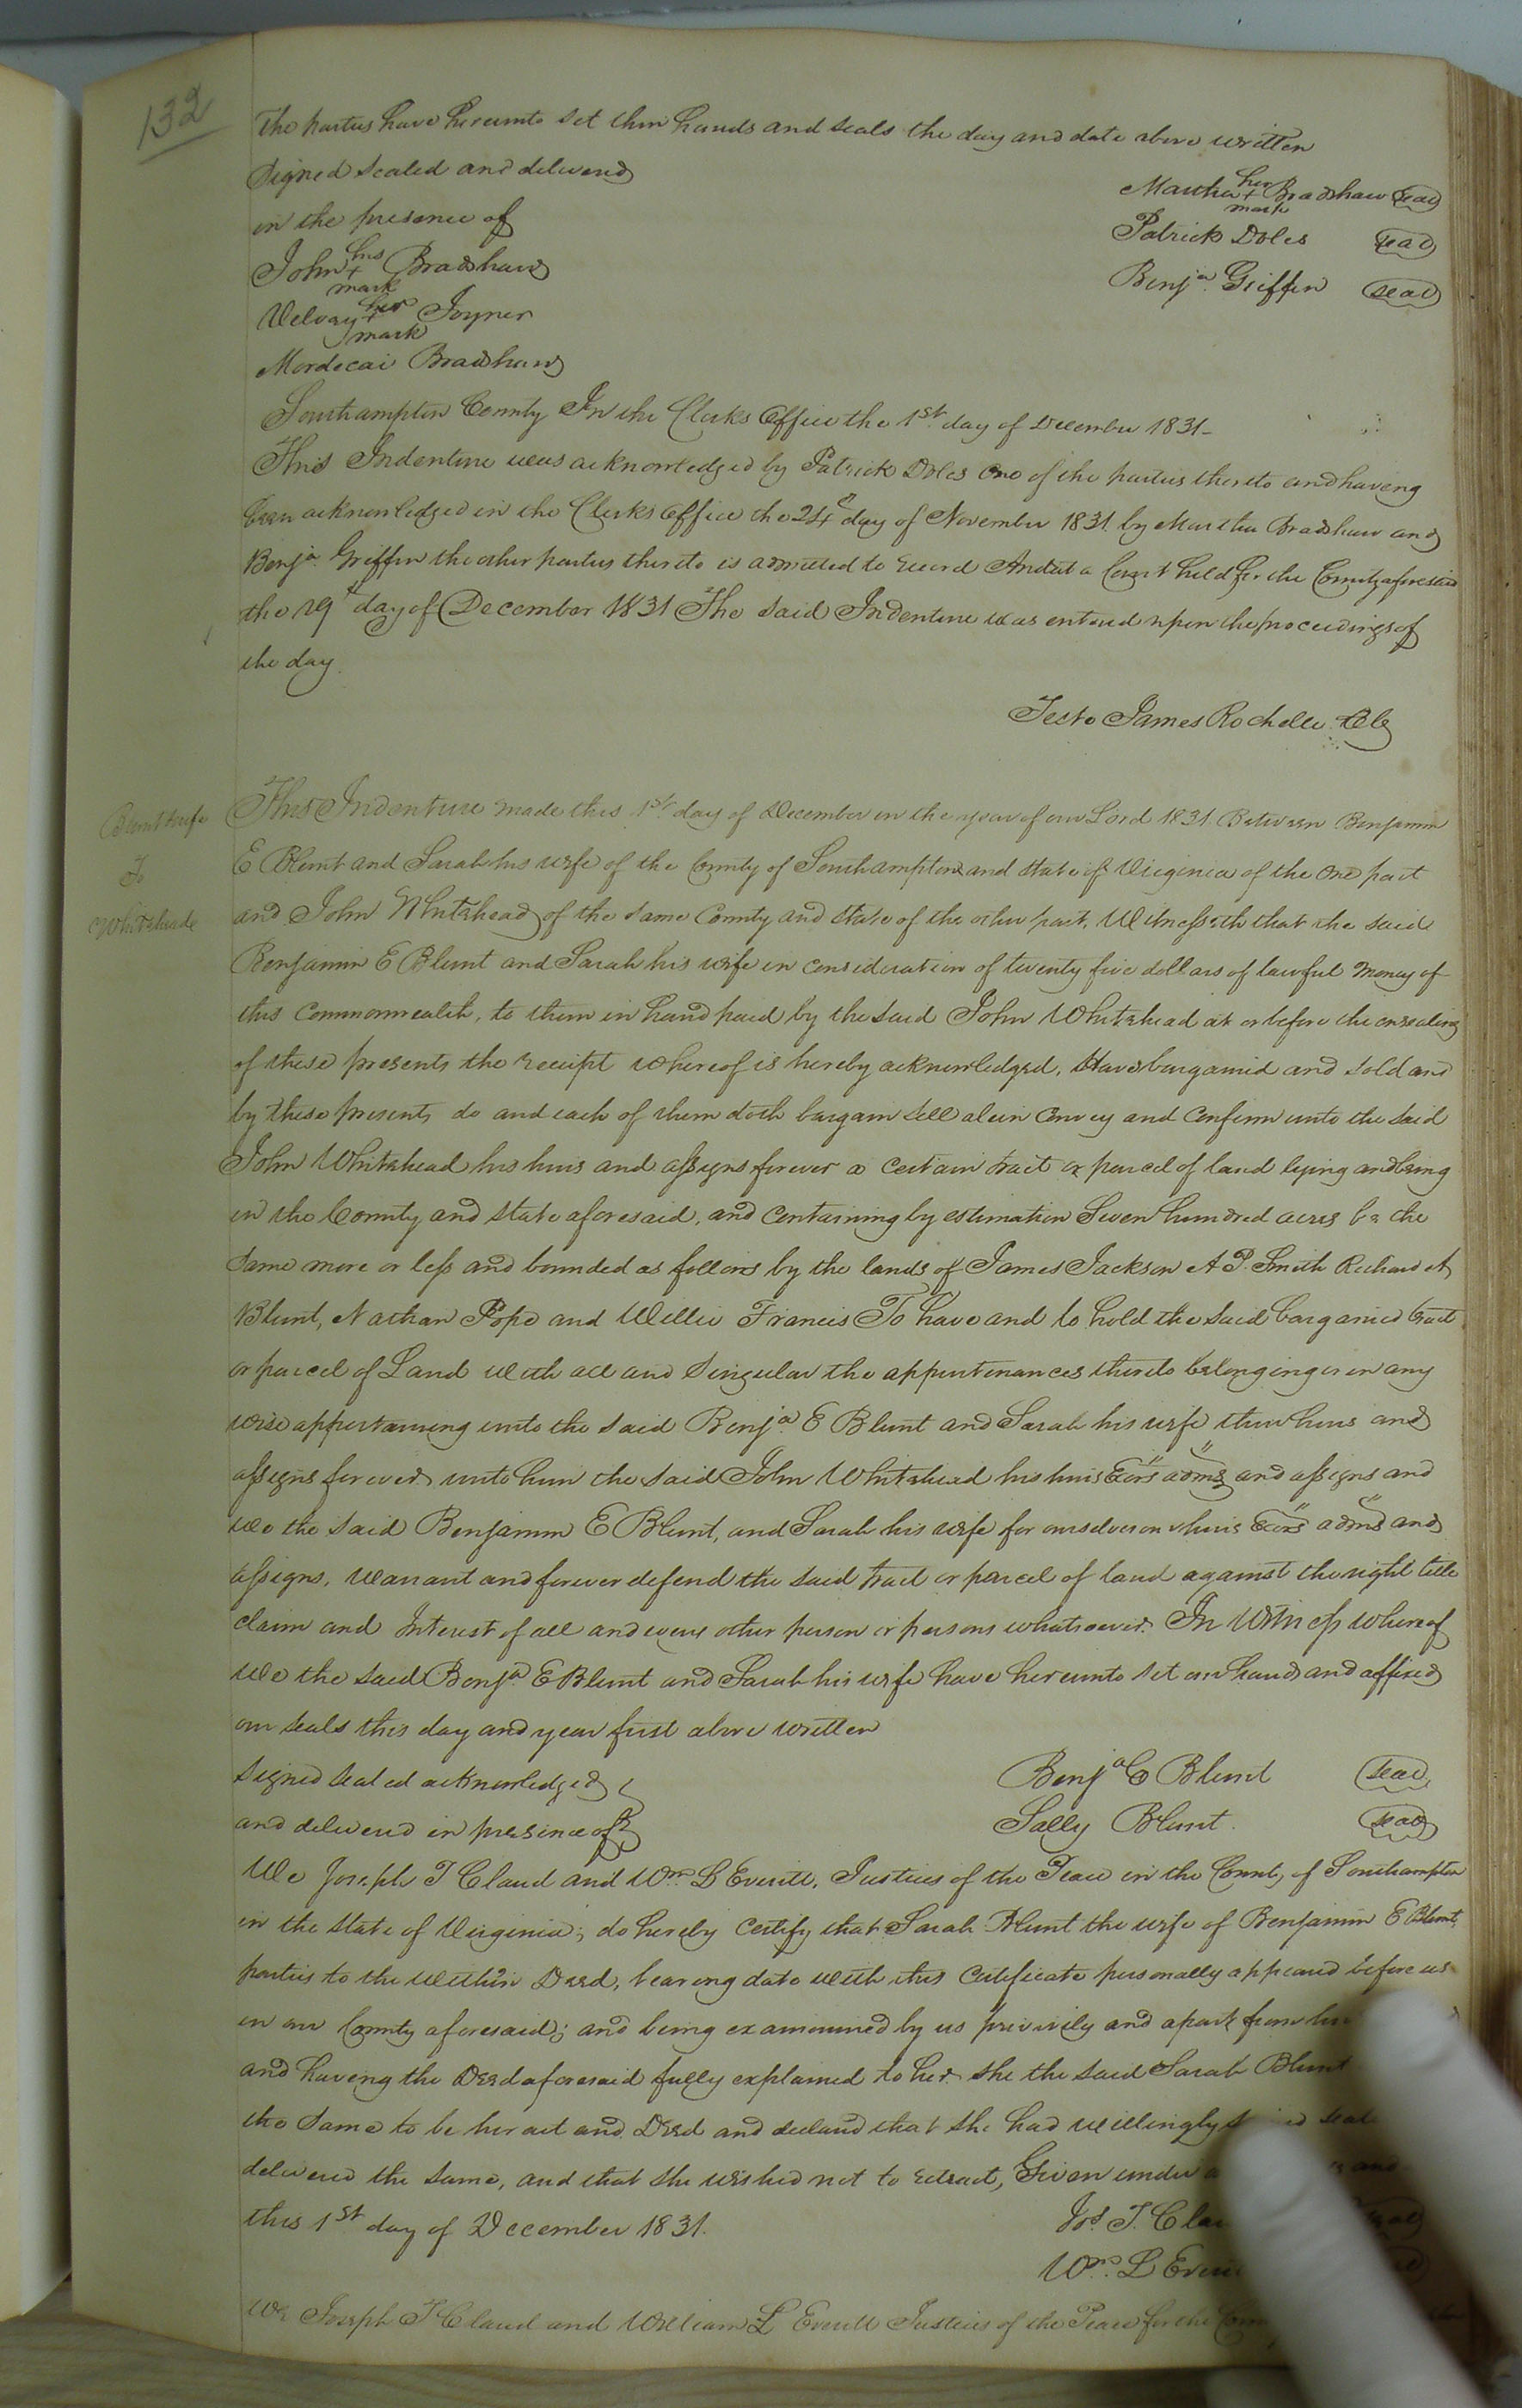 132
The parties have hereunto set their hands and seals the day and date above written
Signed sealed and delivered
in the presence of
Martha her + mark Bradshaw seal
Patrick Doles seal
John his + mark Bradshaw
Benja. Griffin seal
her + mark Joyner
Mordecai Bradshaw
Southampton County In the Clerks Office the 1st day of December 1831-
This Indenture was acknowledged by Patrick Doles one of the parties thereto and having
been acknowledged in the Clerks Office the 24th day of November 1831 by Martha Bradshaw and
Benja. Griffin the other parties thereto is admitted to record And at a Court held for the County aforesaid
the 19th day of December 1831 The said Indenture was entered upon the proceedings of
the day.
Teste James Rochelle Clk
Blunt & wife
To
Whitehead
This Indenture made this 1st day of December in the year of our Lord 1831 Between Benjamin
E Blunt and Sarah his wife of the County of Southampton and State of Virginia of the one part
and John Whitehead of the same County and State of the other part, Witnesseth that the said
Benjamin E Blunt and Sarah his wife in consideration of twenty five dollars of lawful money of
this Commonwealth, to them in hand paid by the said John Whitehead at or before the ensealing
of these presents the receipt whereof is hereby acknowledged, Have bargained and sold and
by these presents do and each of them doth bargain sell alein convey and confirm unto the said
John Whitehead his heirs and assigns forever a certain tract or parcel of land lying and being
in the County and State aforesaid, and containing by estimation Seven hundred acres be the
same more or less and bounded as follows by the lands of James Jackson A P. Smith Richard A
Blunt, Nathan Pope and Willie Francis To have and to hold the said bargained tract
or parcel of Land with all and singular the appurtenances thereto belonging or in any
wise appertaining unto the said Benja. E Blunt and Sarah his wife their heirs and
assigns forever unto him the said John Whitehead his heirs Exors adms and assigns and
we the said Benjamin E Blunt, and Sarah his wife for ourselves our heirs Exors adms and
assigns, warrant and forever defend the said tract or parcel of land against the right title
claim and Interest of all and every other person or persons whatsoever. In Witness whereof
We the said Benja. E Blunt and Sarah his wife have hereunto set our hands and affixed
our seals this day and year first above written
Signed sealed acknowledged
and delivered in presence of
Benja E Blunt seal
Sally Blunt. seal
We Joseph T Claud and Wm. L Everitt, Justices of the Peace in the County of Southampton
in the State of Virginia; do hereby certify that Sarah Blunt the wife of Benjamin E Blunt,
parties to the within Deed, bearing date with this certificate personally appeared before us
in our County aforesaid; and being examined by us privily and apart from her
and having the Deed aforesaid fully explained to her she the said Sarah Blunt
the same to be her act and Deed and declared that she had willingly
delivered the same, and that she wished not to retract, Given under
this 1st day of December 1831.
Jos. T. Clau
Wm. L Everi
We Joseph T Claud and William L Everitt Justices of the Peace for the